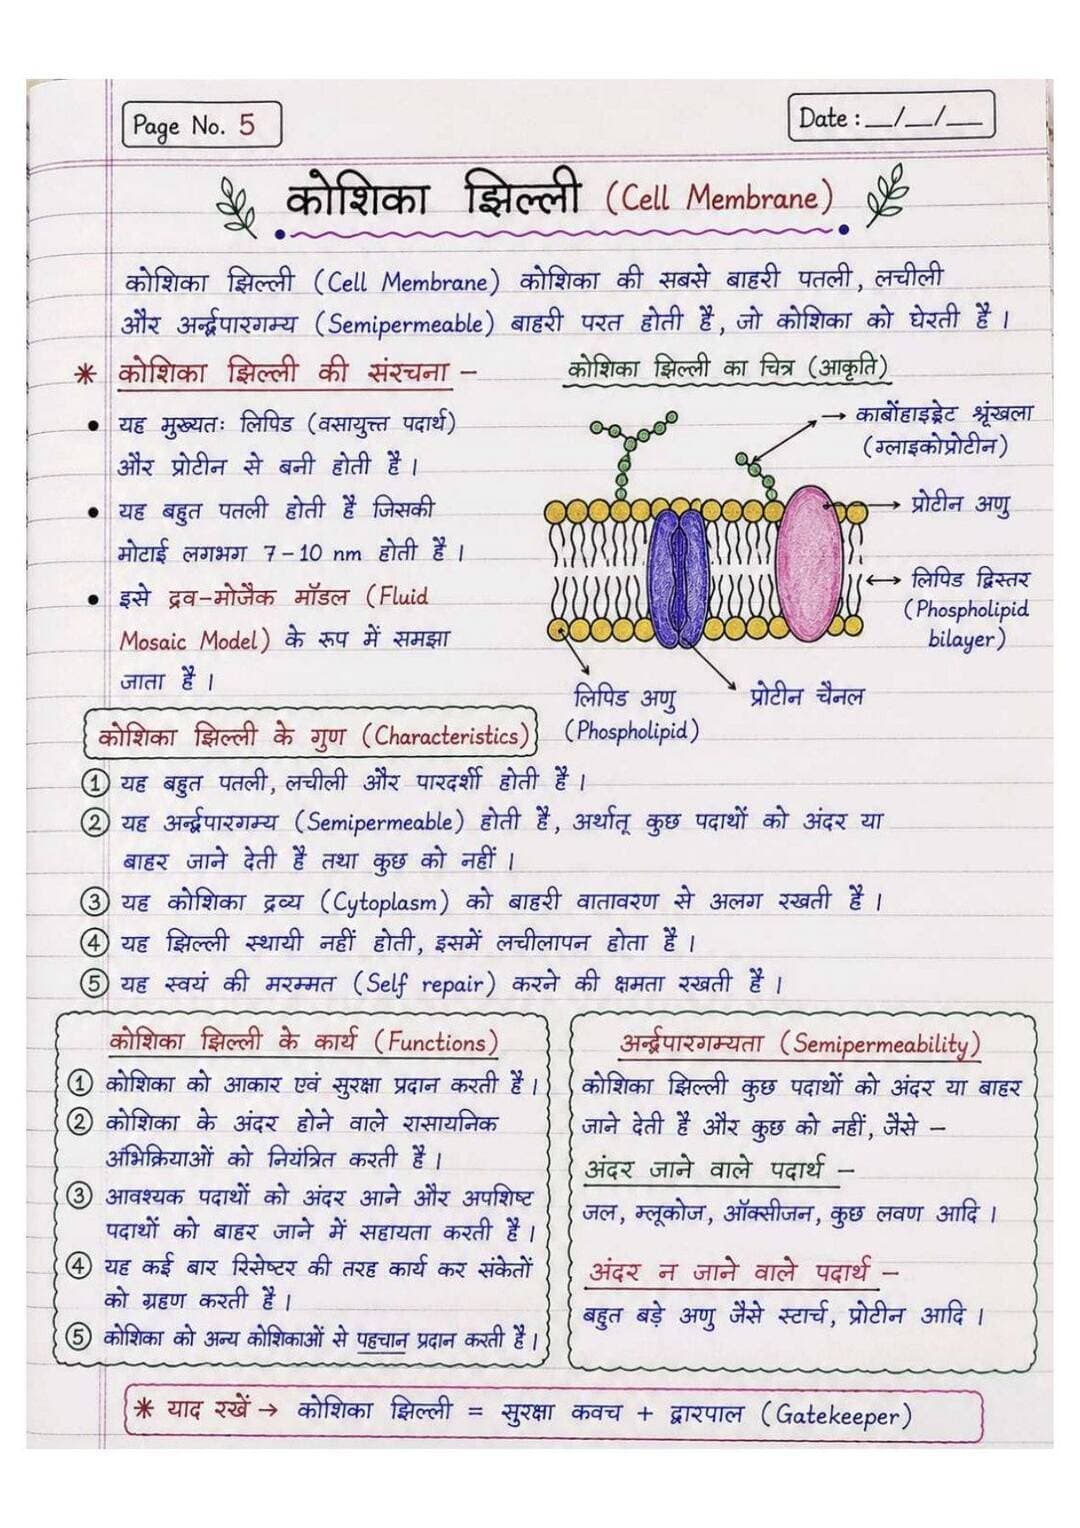 Page No. 5
Date : __/__/__
कोशिका झिल्ली (Cell Membrane)
कोशिका झिल्ली (Cell Membrane) कोशिका की सबसे बाहरी पतली, लचीली
और अर्न्द्वपारगम्य (Semipermeable) बाहरी परत होती है, जो कोशिका को घेरती है।
* कोशिका झिल्ली की संरचना –
• यह मुख्यतः लिपिड (वसायुत्त पदार्थ)
और प्रोटीन से बनी होती है।
• यह बहुत पतली होती है जिसकी
मोटाई लगभग 7-10 nm होती है।
• इसे द्रव-मोजैक मॉडल (Fluid
Mosaic Model) के रूप में समझा
जाता है।
कोशिका झिल्ली का चित्र (आकृति)
→ कार्बोहाइड्रेट श्रृंखला
(ग्लाइकोप्रोटीन)
→ प्रोटीन अणु
↔ लिपिड द्विस्तर
(Phospholipid
bilayer)
लिपिड अणु
(Phospholipid)
प्रोटीन चैनल
कोशिका झिल्ली के गुण (Characteristics)
① यह बहुत पतली, लचीली और पारदर्शी होती है।
② यह अर्न्द्वपारगम्य (Semipermeable) होती है, अर्थात् कुछ पदार्थों को अंदर या
बाहर जाने देती है तथा कुछ को नहीं।
③ यह कोशिका द्रव्य (Cytoplasm) को बाहरी वातावरण से अलग रखती है।
④ यह झिल्ली स्थायी नहीं होती, इसमें लचीलापन होता है।
⑤ यह स्वयं की मरम्मत (Self repair) करने की क्षमता रखती है।
कोशिका झिल्ली के कार्य (Functions)
① कोशिका को आकार एवं सुरक्षा प्रदान करती है।
② कोशिका के अंदर होने वाले रासायनिक
अभिक्रियाओं को नियंत्रित करती है।
③ आवश्यक पदार्थों को अंदर आने और अपशिष्ट
पदार्थों को बाहर जाने में सहायता करती है।
④ यह कई बार रिसेष्टर की तरह कार्य कर संकेतों
को ग्रहण करती है।
⑤ कोशिका को अन्य कोशिकाओं से पहचान प्रदान करती है।
अर्न्द्वपारगम्यता (Semipermeability)
कोशिका झिल्ली कुछ पदार्थों को अंदर या बाहर
जाने देती है और कुछ को नहीं, जैसे –
अंदर जाने वाले पदार्थ –
जल, म्लूकोज, ऑक्सीजन, कुछ लवण आदि।
अंदर न जाने वाले पदार्थ –
बहुत बड़े अणु जैसे स्टार्च, प्रोटीन आदि।
* याद रखें → कोशिका झिल्ली = सुरक्षा कवच + द्वारपाल (Gatekeeper)